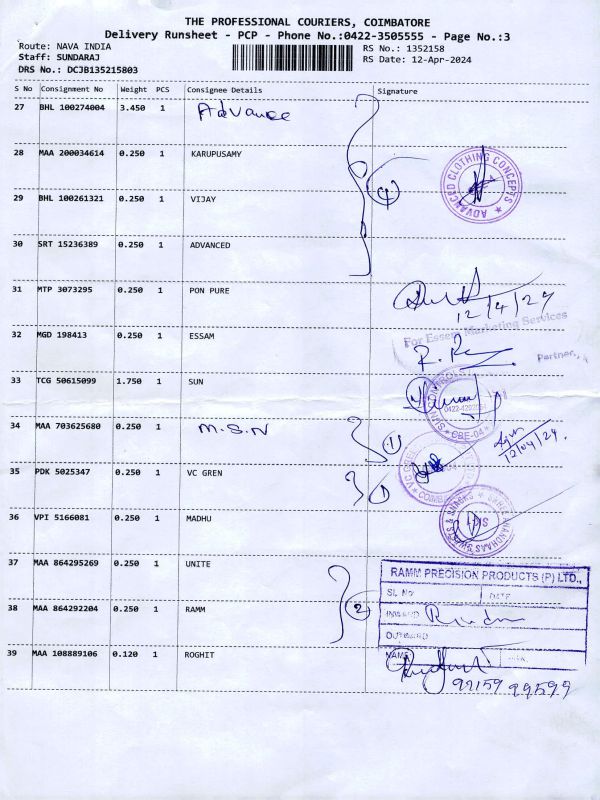 THE PROFESSIONAL COURIERS, COIMBATORE
Delivery Runsheet - PCP - Phone No.:0422-3505555 - Page No.:3
Route: NAVA INDIA RS No.: 1352158
Staff: SUNDARAJ RS Date: 12-Apr-2024
DRS No.: DCJB135215803
S No Consignment No Weight PCS Consignee Details Signature
27 BHL 100274004 3.450 1 Advance
28 MAA 200034614 0.250 1 KARUPUSAMY
ADVANCED CLOTHING CONCEPTS
29 BHL 100261321 0.250 1 VIJAY
4
30 SRT 15236389 0.250 1 ADVANCED
31 MTP 3073295 0.250 1 PON PURE
12/4/24
32 MGD 198413 0.250 1 ESSAM
For Essem Marketing Services
Partner,
33 TCG 50615099 1.750 1 SUN
CBE-04
34 MAA 703625680 0.250 1 M.S.N
1
12/04/24.
35 PDK 5025347 0.250 1 VC GREN
1
36 VPI 5166081 0.250 1 MADHU
37 MAA 864295269 0.250 1 UNITE
RAMM PRECISION PRODUCTS (P) LTD.,
SL NO DATE
38 MAA 864292204 0.250 1 RAMM
2
INWARD
OUTWARD
39 MAA 108889106 0.120 1 ROGHIT
NAME
99159 99599